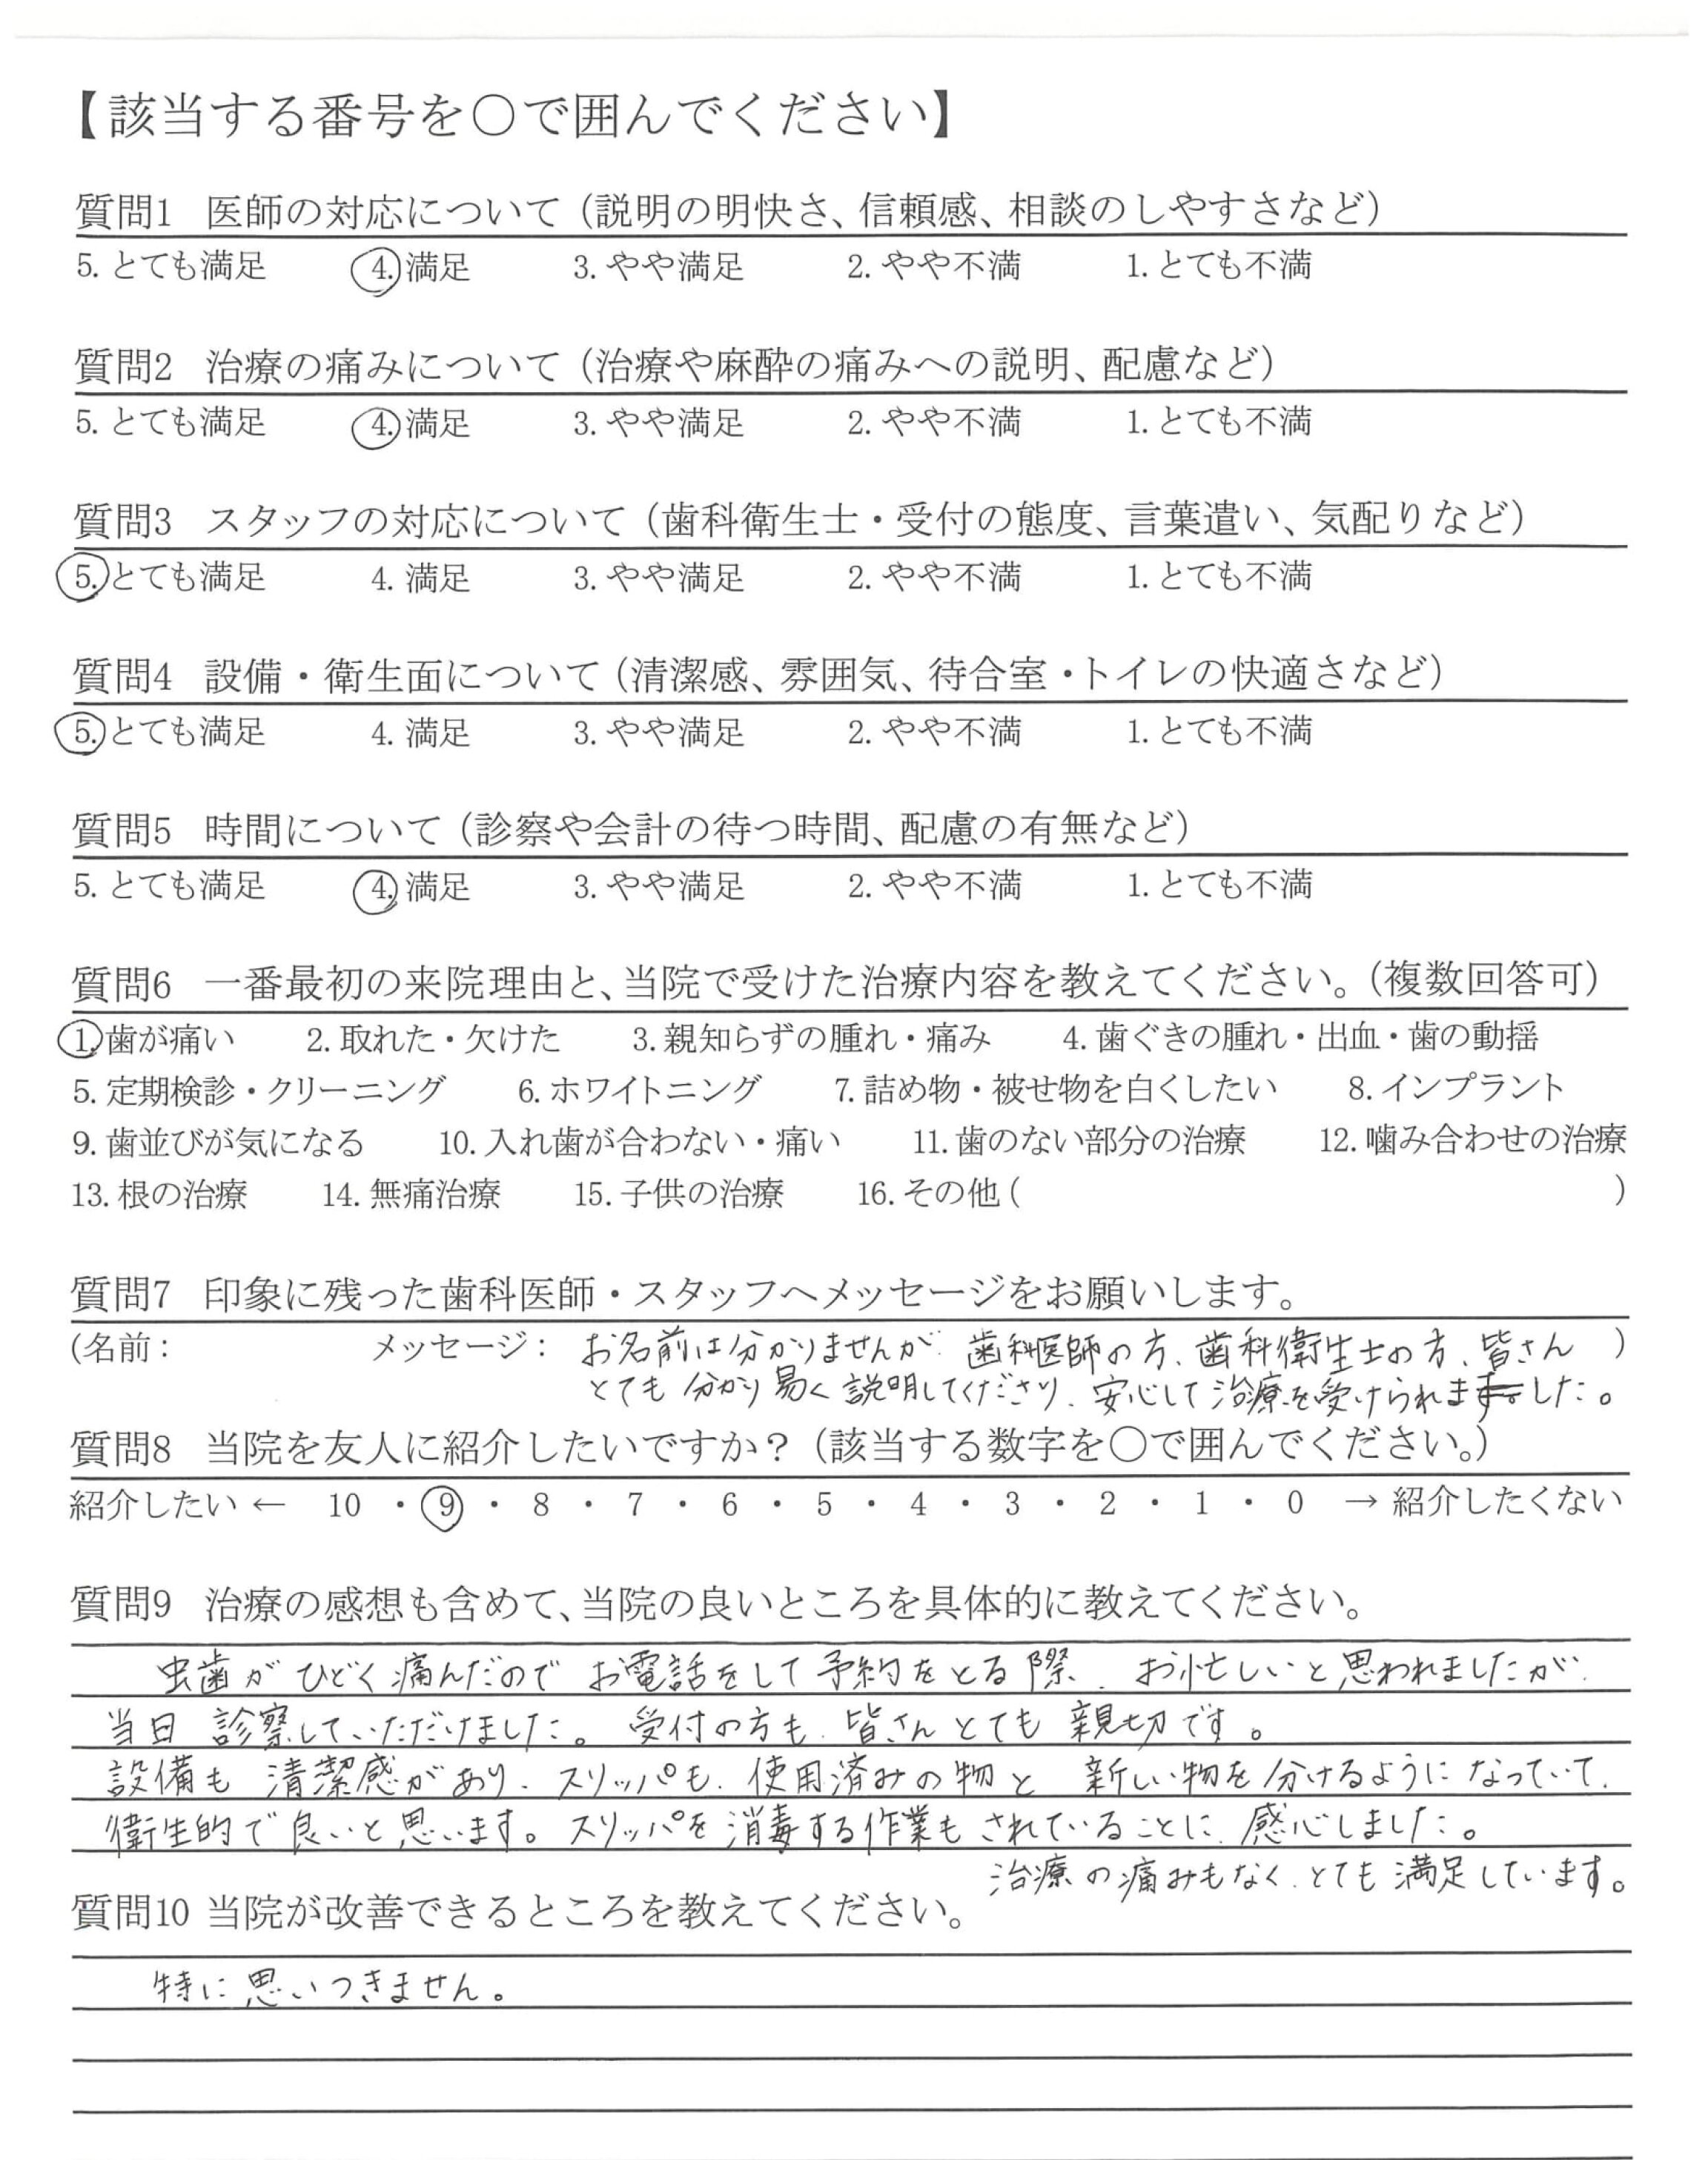 【該当する番号を〇で囲んでください】
質問1 医師の対応について（説明の明快さ、信頼感、相談のしやすさなど）
5. とても満足 4. 満足 3. やや満足 2. やや不満 1. とても不満
質問2 治療の痛みについて（治療や麻酔の痛みへの説明、配慮など）
5. とても満足 4. 満足 3. やや満足 2. やや不満 1. とても不満
質問3 スタッフの対応について（歯科衛生士・受付の態度、言葉遣い、気配りなど）
5. とても満足 4. 満足 3. やや満足 2. やや不満 1. とても不満
質問4 設備・衛生面について（清潔感、雰囲気、待合室・トイレの快適さなど）
5. とても満足 4. 満足 3. やや満足 2. やや不満 1. とても不満
質問5 時間について（診察や会計の待つ時間、配慮の有無など）
5. とても満足 4. 満足 3. やや満足 2. やや不満 1. とても不満
質問6 一番最初の来院理由と、当院で受けた治療内容を教えてください。（複数回答可）
1. 歯が痛い 2. 取れた・欠けた 3. 親知らずの腫れ・痛み 4. 歯ぐきの腫れ・出血・歯の動揺
5. 定期検診・クリーニング 6. ホワイトニング 7. 詰め物・被せ物を白くしたい 8. インプラント
9. 歯並びが気になる 10. 入れ歯が合わない・痛い 11. 歯のない部分の治療 12. 噛み合わせの治療
13. 根の治療 14. 無痛治療 15. 子供の治療 16. その他（ ）
質問7 印象に残った歯科医師・スタッフへメッセージをお願いします。
（名前： メッセージ： お名前は分かりませんが、歯科医師の方、歯科衛生士の方、皆さん ）
とても分かり易く説明してくださり、安心して治療を受けられました。
質問8 当院を友人に紹介したいですか？（該当する数字を〇で囲んでください。）
紹介したい ← 10 ・ 9 ・ 8 ・ 7 ・ 6 ・ 5 ・ 4 ・ 3 ・ 2 ・ 1 ・ 0 → 紹介したくない
質問9 治療の感想も含めて、当院の良いところを具体的に教えてください。
虫歯がひどく痛んだのでお電話をして予約をとる際、お忙しいと思われましたが、
当日診察していただけました。受付の方も、皆さんとても親切です。
設備も清潔感があり、スリッパも、使用済みの物と新しい物を分けるようになっていて、
衛生的で良いと思います。スリッパを消毒する作業もされていることに、感心しました。
治療の痛みもなく、とても満足しています。
質問10 当院が改善できるところを教えてください。
特に思いつきません。